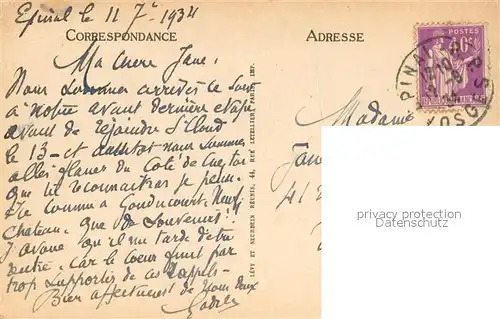 Epinal le 11 7e 1934
CORRESPONDANCE
ADRESSE
Ma Chère Jane:
Nous sommes arrivés ce soir
à notre avant dernière étape
avant de rejoindre St Cloud
le 13 - et nous sommes
allés flâner du Coté de
que tu reconnaitras je pense
Gondrecourt - Neuf
Château. Que de Souvenirs!
J'avoue qu'il me tarde d'être
rentré. Car le Coeur finit par
trop Supporter de ces rappels -
Bien affectueusement de Nous deux
LÉVY ET NEURDEIN RÉUNIS, 44, RUE LETELLIER, PARIS, IMP.
Madame
41
POSTES
40c
EPINAL
VOSGES
privacy protection
Datenschutz